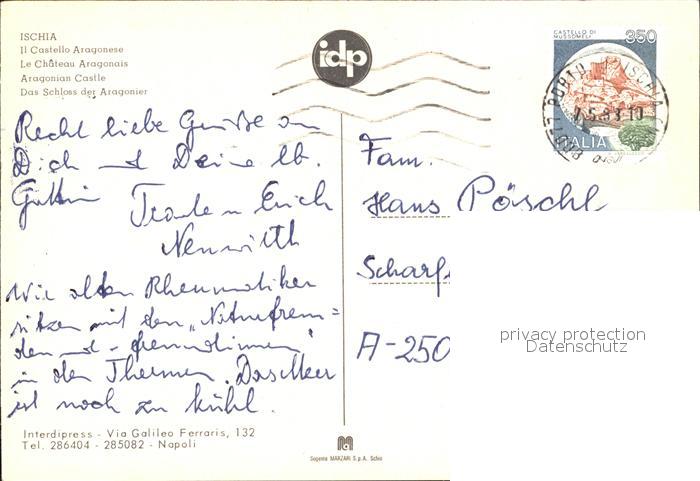 ISCHIA
Il Castello Aragonese
Le Château Aragonais
Aragonian Castle
Das Schloss der Aragonier
idp
CASTELLO DI
MUSSOMELI
350
ITALIA
80077 PORTO D'ISCHIA
Recht liebe Grüße an
Dich und Deine lb.
Gattin
Traute u Erich
Neuwirth
Wir alten Rheumatiker
sitzen mit den „Naturefreun=
den und - freundinnen"
in den Thermen. Das Meer
ist noch zu kühl.
Fam.
Hans Pöschl
Scharf
A-250
privacy protection
Datenschutz
Interdipress - Via Galileo Ferraris, 132
Tel. 286404 - 285082 - Napoli
Sogente MANZARI S.p.A. Schio